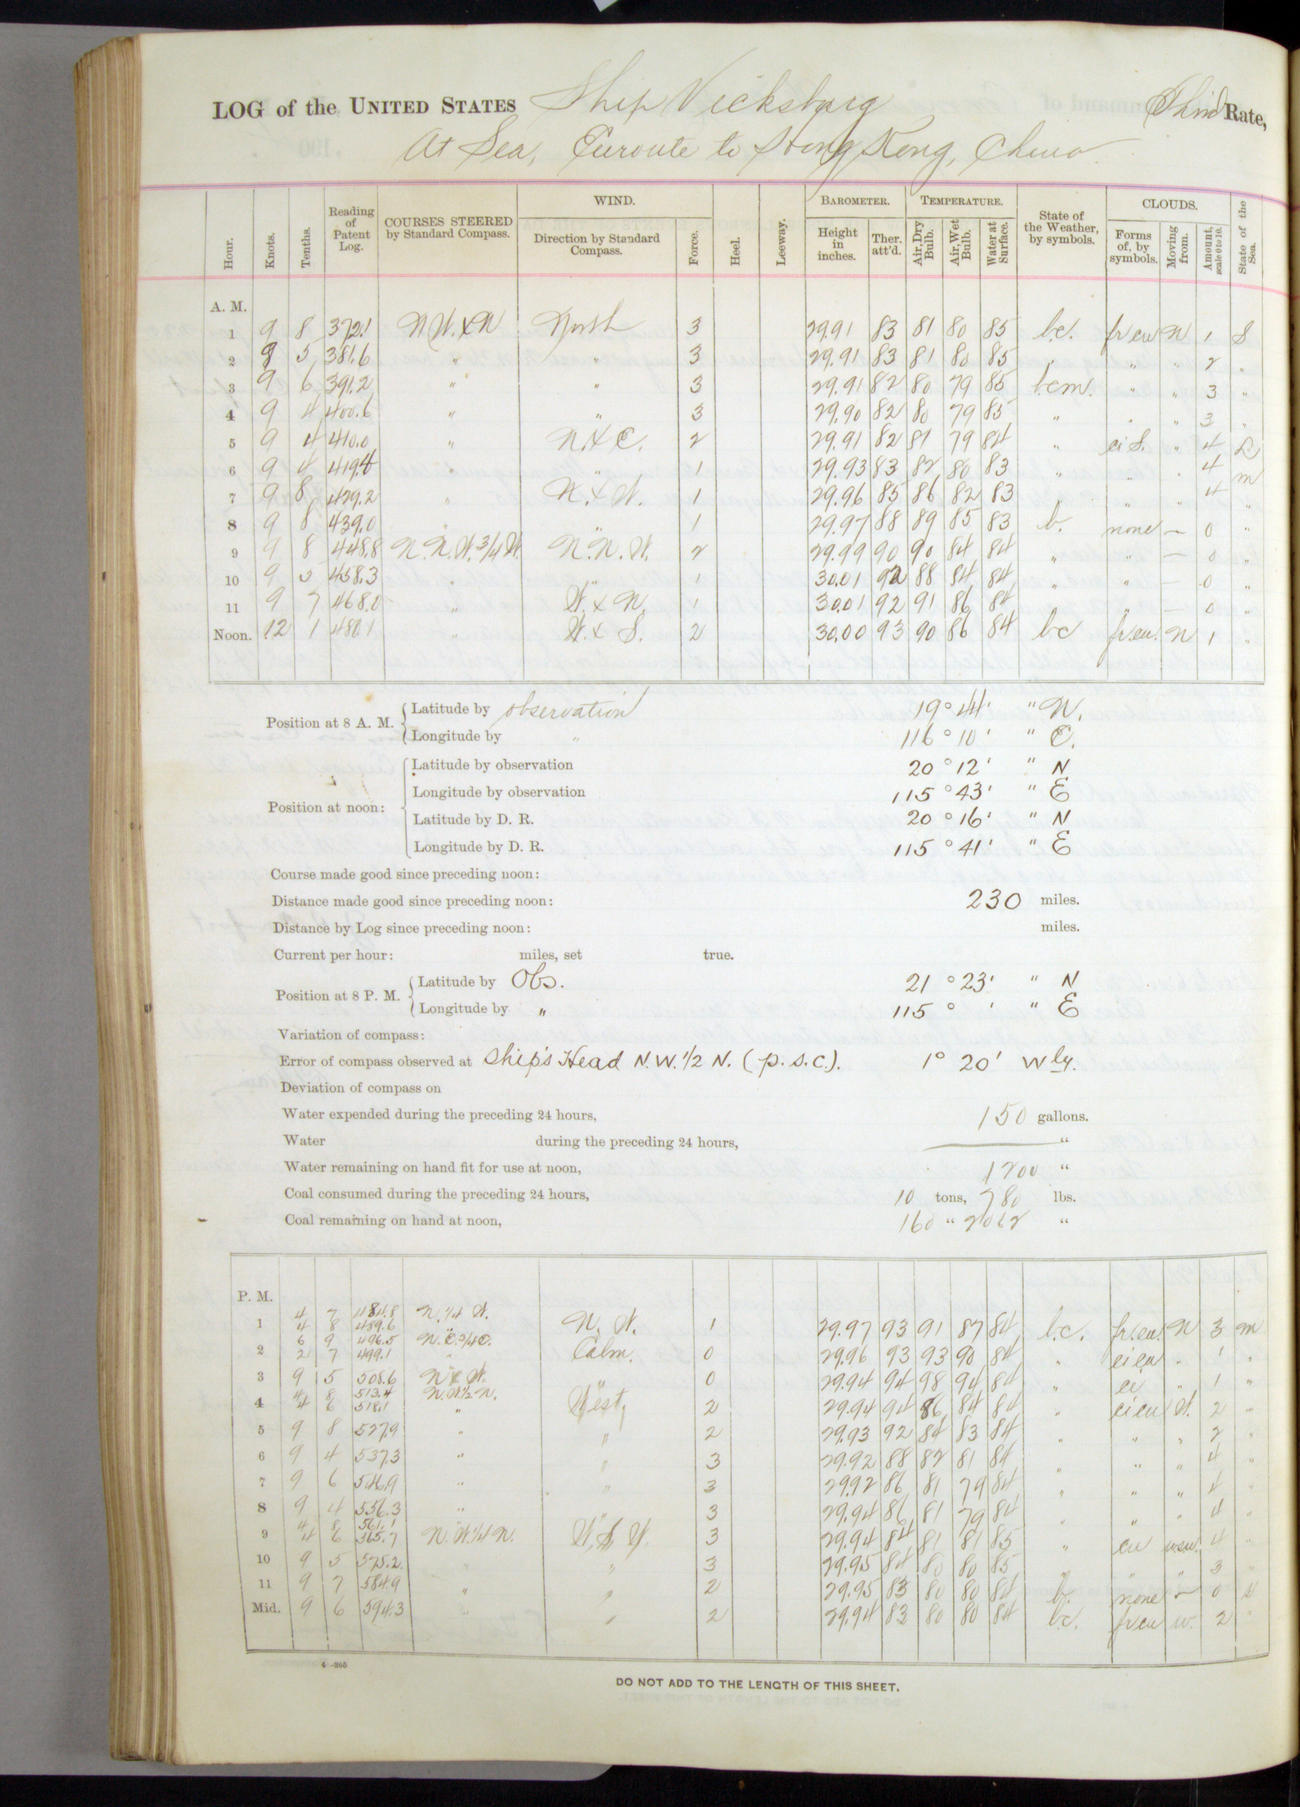 LOG of the UNITED STATES Ship Vicksburg Third Rate,
At Sea, Enroute to Hong Kong, China.
Hour. Knots. Tenths. Reading of Patent Log. COURSES STEERED by Standard Compass. WIND. Direction by Standard Compass. Force. Heel. Leeway. BAROMETER. Height in inches. Ther. att'd. TEMPERATURE. Air, Dry Bulb. Air, Wet Bulb. Water at Surface. State of the Weather, by symbols. CLOUDS. Forms of, by symbols. Moving from. Amount, scale 0 to 10. State of the Sea.
A. M.
1 9 8 372.1 N W. x N North 3 29.91 83 81 80 85 b.c. fr cu N 1 S
2 9 5 381.6 " " 3 29.91 83 81 80 85 " " " 2 "
3 9 6 391.2 " " 3 29.91 82 80 79 85 bcm. " " 3 "
4 9 4 400.6 " " 3 29.90 82 80 79 85 " " " 3 "
5 9 4 410.0 " N. x E. 2 29.91 82 81 79 84 " ci S. " 4 L
6 9 4 419.4 " " 1 29.93 83 82 80 83 " " " 4 m
7 9 8 429.2 " N. x W. 1 29.96 85 86 82 83 " " " 4 "
8 9 8 439.0 " " 1 29.97 88 89 85 83 b. none — 0 "
9 9 8 448.8 N. N. W. 3/4 W. N. N. W. 2 29.99 90 90 84 84 " " — 0 "
10 9 5 458.3 " " 1 30.01 92 88 84 84 " " — 0 "
11 9 7 468.0 " W. x N. 1 30.01 92 91 86 84 " " — 0 "
Noon. 12 1 480.1 " W. x S. 2 30.00 93 90 86 84 bc fr. cu. N 1 "
Position at 8 A. M. Latitude by observation 19 ° 44 ' " N.
Longitude by " 116 ° 10 ' " E.
Position at noon: Latitude by observation 20 ° 12 ' " N
Longitude by observation 115 ° 43 ' " E
Latitude by D. R. 20 ° 16 ' " N
Longitude by D. R. 115 ° 41 ' " E
Course made good since preceding noon:
Distance made good since preceding noon: 230 miles.
Distance by Log since preceding noon: miles.
Current per hour: miles, set true.
Position at 8 P. M. Latitude by Obs. 21 ° 23 ' " N
Longitude by " 115 ° ' " E
Variation of compass:
Error of compass observed at Ship's Head N.W. 1/2 N. (p.s.c.). 1° 20' Wly.
Deviation of compass on
Water expended during the preceding 24 hours, 150 gallons.
Water during the preceding 24 hours, — "
Water remaining on hand fit for use at noon, 1200 "
Coal consumed during the preceding 24 hours, 10 tons, 780 lbs.
Coal remaining on hand at noon, 160 " 2012 "
P. M.
4 7 484.8 N. 1/4 W.
1 4 8 489.6 " N. W. 1 29.97 93 91 87 84 b.c. fr. cu. N 3 m
6 9 496.5 N. E. 3/4 E.
2 2 7 499.1 " Calm. 0 29.96 93 93 90 84 " ci cu " 1 "
3 9 5 508.6 N x W. " 0 29.94 94 98 94 84 " ci " 1 "
4 8 513.4 N. W. 1/2 N.
4 4 6 518.1 " West, 2 29.94 94 86 84 84 " ci cu W. 2 "
5 9 8 527.9 " " 2 29.93 92 84 83 84 " " " 2 "
6 9 4 537.3 " " 3 29.92 88 82 81 84 " " " 4 "
7 9 6 546.9 " " 3 29.92 86 81 79 84 " " " 4 "
8 9 4 556.3 " " 3 29.94 86 81 79 84 " " " 4 "
4 8 561.1
9 4 6 565.7 N. W. 1/4 N. W. S. W. 3 29.94 84 81 81 85 " cu wsw. 4 "
10 9 5 575.2 " " 3 29.95 84 80 80 85 " " " 3 "
11 9 7 584.9 " " 2 29.95 83 80 80 84 b. none — 0 S
Mid. 9 6 594.3 " " 2 29.94 83 80 80 84 b.c. fr cu w. 2 "
6—265
DO NOT ADD TO THE LENGTH OF THIS SHEET.